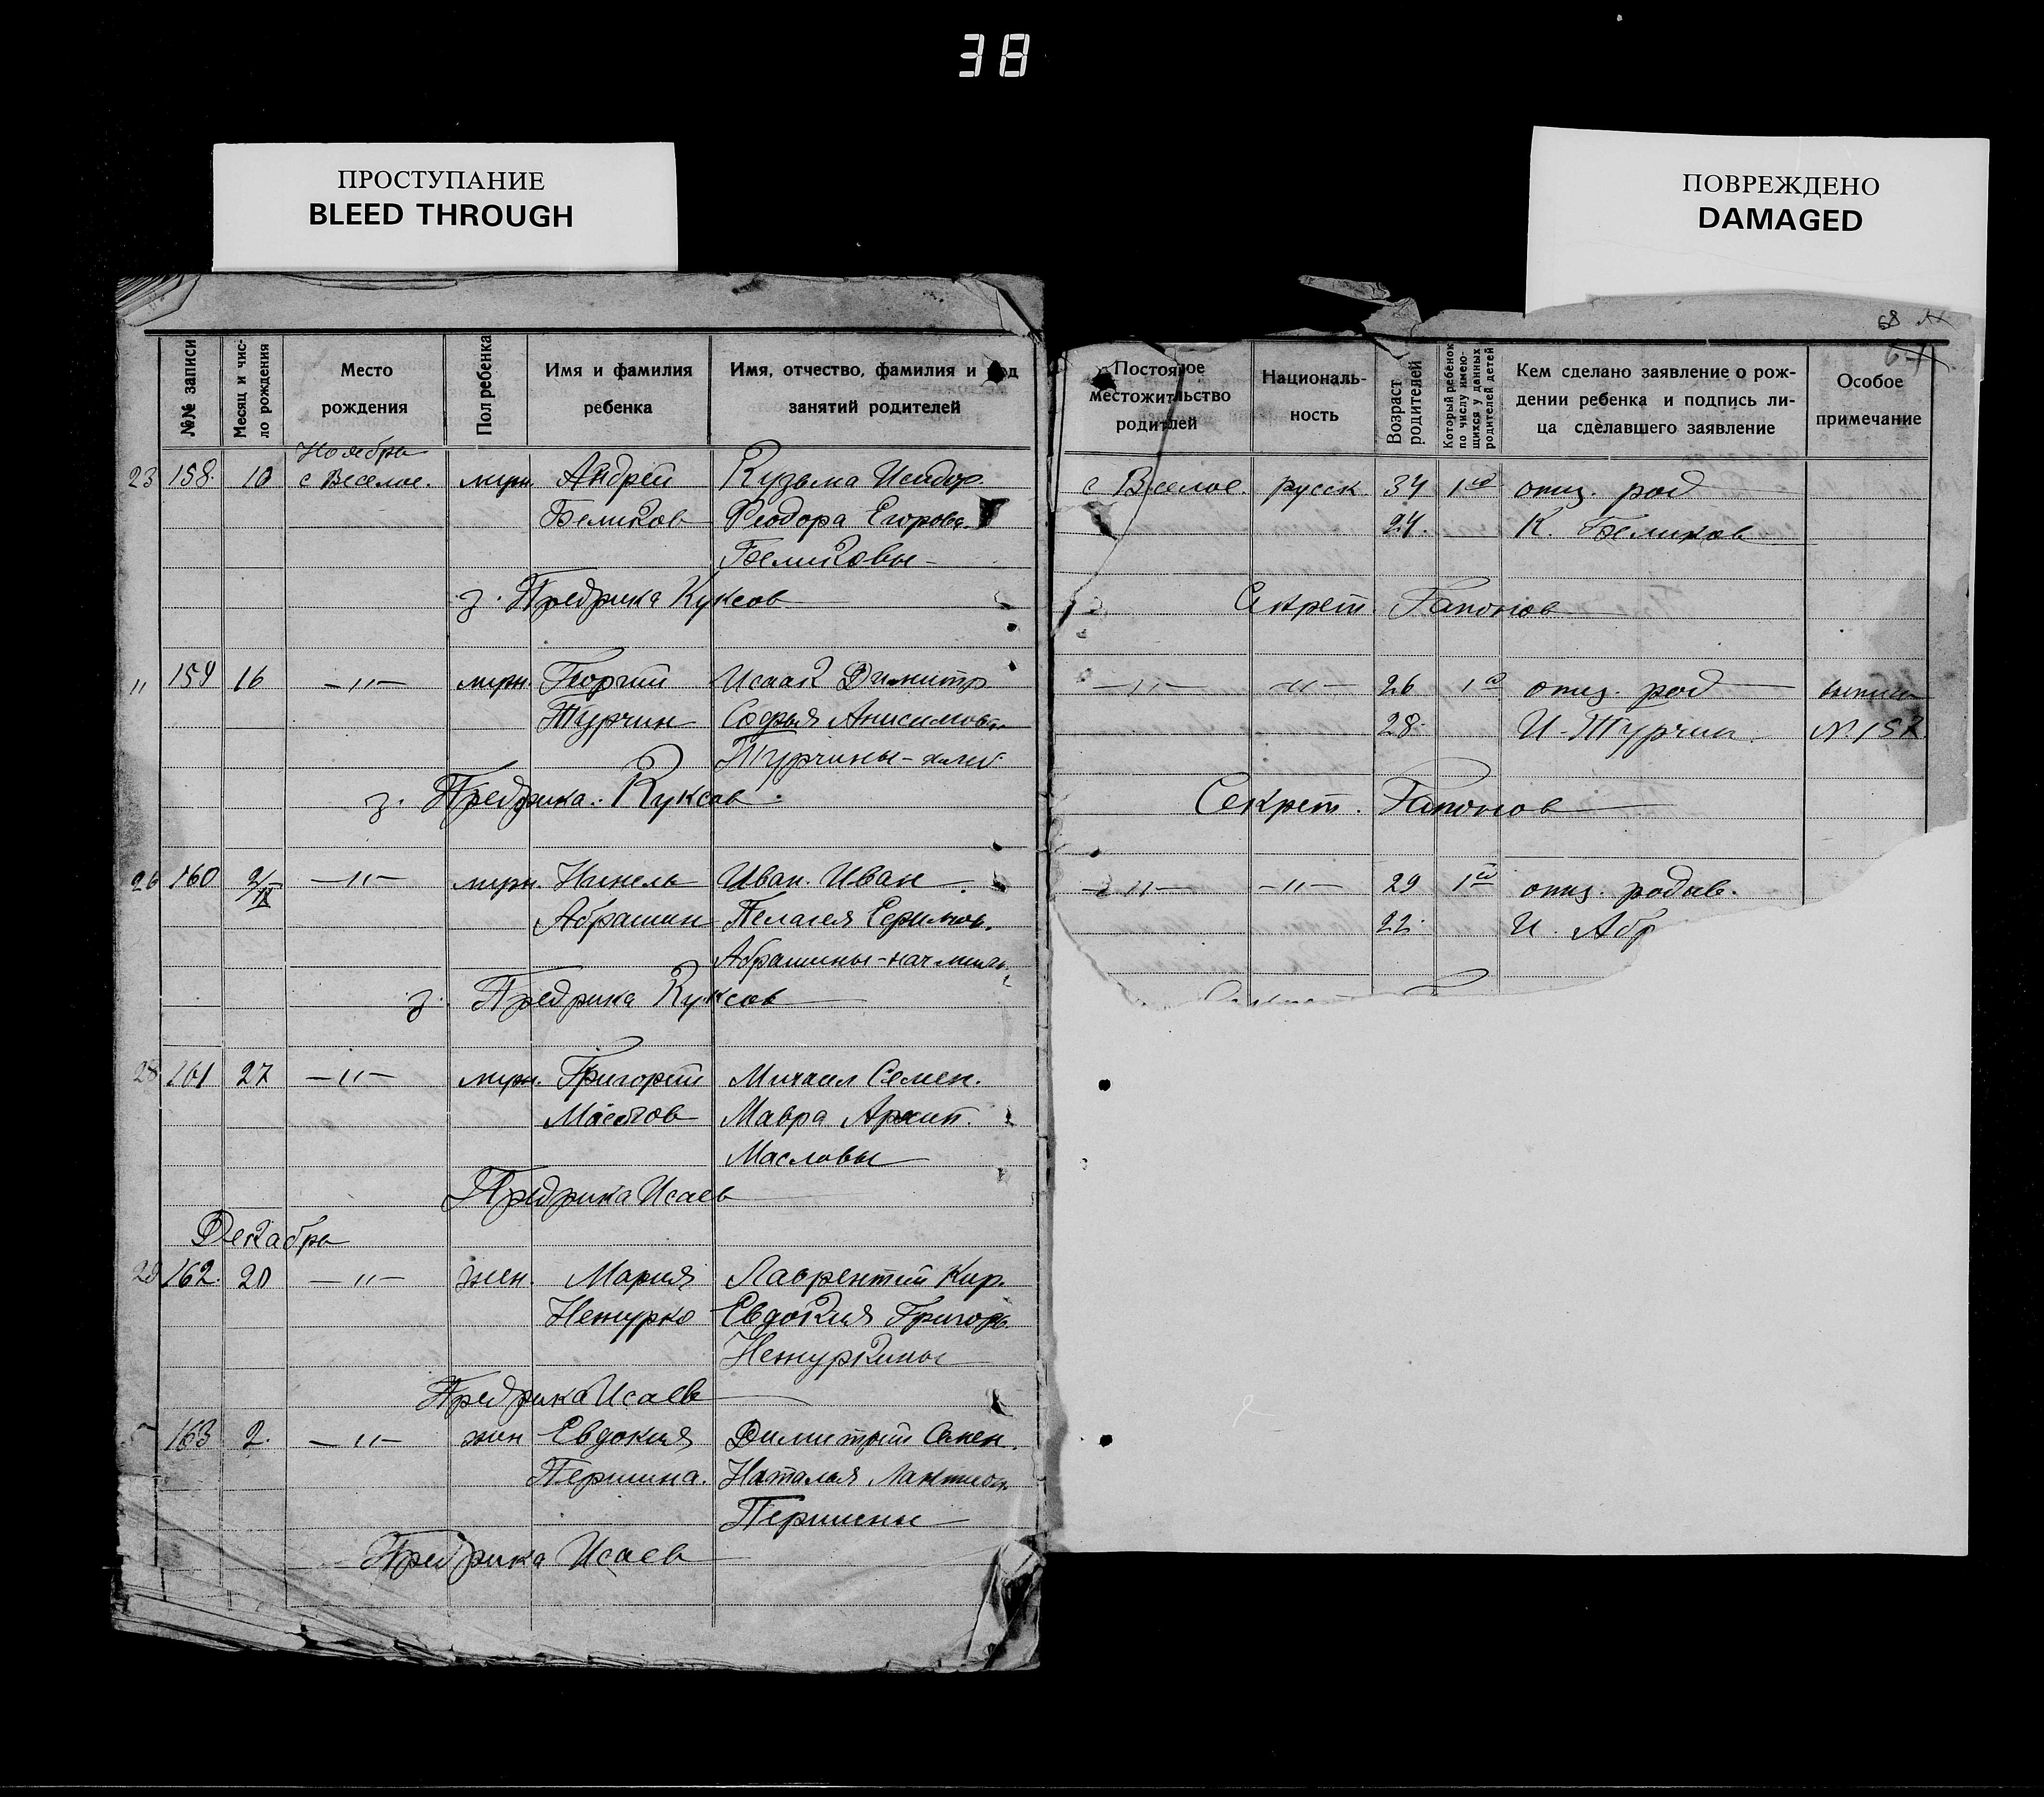 38
ПРОСТУПАНИЕ
BLEED THROUGH
ПОВРЕЖДЕНО
DAMAGED
68
№№ записи
Месяц и число рождения
Место рождения
Пол ребенка
Имя и фамилия ребенка
Имя, отчество, фамилия и род занятий родителей
Постоянное местожительство родителей
Националь-
ность
Возраст родителей
Который ребенок по числу имею-
щихся у данных родителей детей
Кем сделано заявление о рож-
дении ребенка и подпись ли-
ца сделавшего заявление
Особое
примечание
Ноябрь
23 158. 10 с Веселое. муж. Андрей Кузьма Исидор. с Веселое. русск. 34 1й отц. род
Беликов Феодора Егоровн. 24. К. Беликов
Беликовы
з. Предрика Куксов Секрет. Гапонов
11 159 16 —"— муж. Георгий Исаак Димитр —"— —"— 26 1й отц. род
Турчин Софья Анисимовн. 28. И. Турчин № 157
Турчины - хлеб.
з. Предрика. Куксов. Секрет. Гапонов
26 160 2/IX —"— муж. Нинель Иван. Иван —"— —"— 29 1й отц. родив.
Абрашин Пелагея Ефимов. 22. И. Абр
Абрашины - нач милиц.
з. Предрика Куксов
28 161 27 —"— муж. Григорий Михаил Семен.
Маслов Мавра Архип.
Масловы
Предрика Исаев
Декабрь
29 162. 20 —"— жен. Мария Лаврентий Кир.
Нежурко Евдокия Григорь.
Нежуркины
Предрика Исаев
163 2. —"— жен Евдокия Димитрий Семен.
Першина. Наталья
Першины
Предрика Исаев